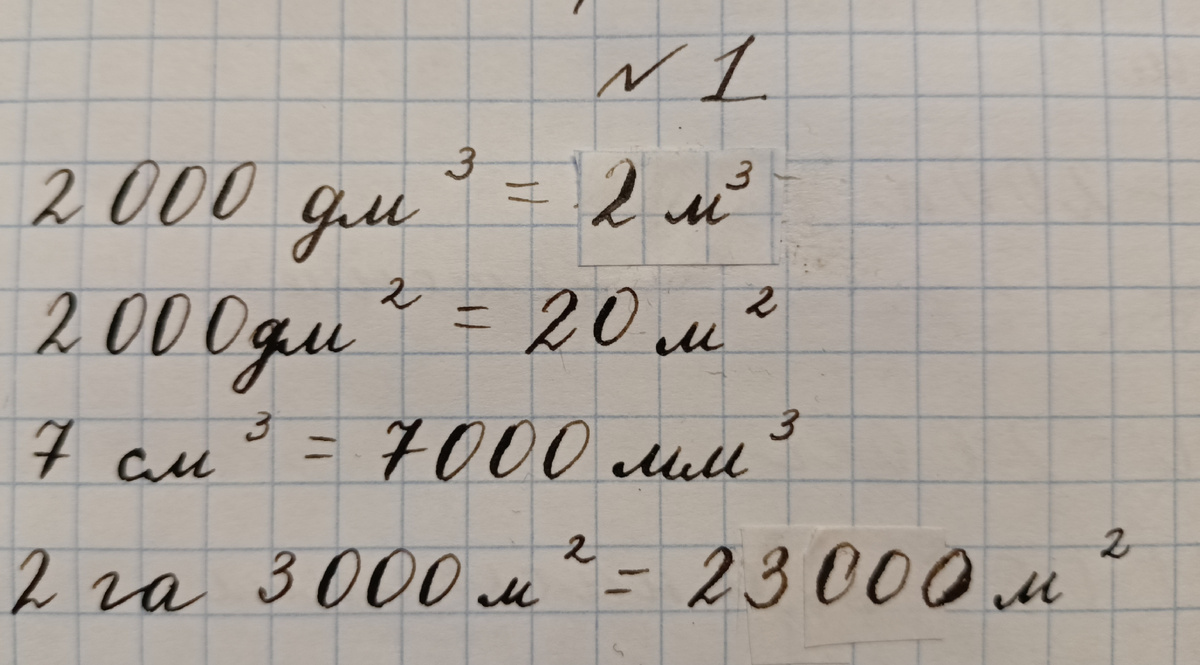 № 1
2 000 дм³ = 2 м³
2 000 дм² = 20 м²
7 см³ = 7000 мм³
2 га 3000 м² = 23000 м²